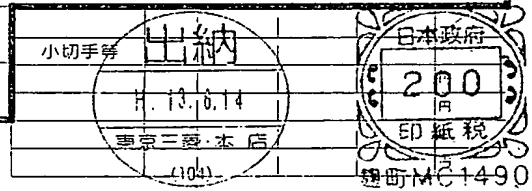 小切手等
出納
H. 13.6.14
東京三菱・本店
(104)
日本政府
200
円
印紙税
麹町MC1490